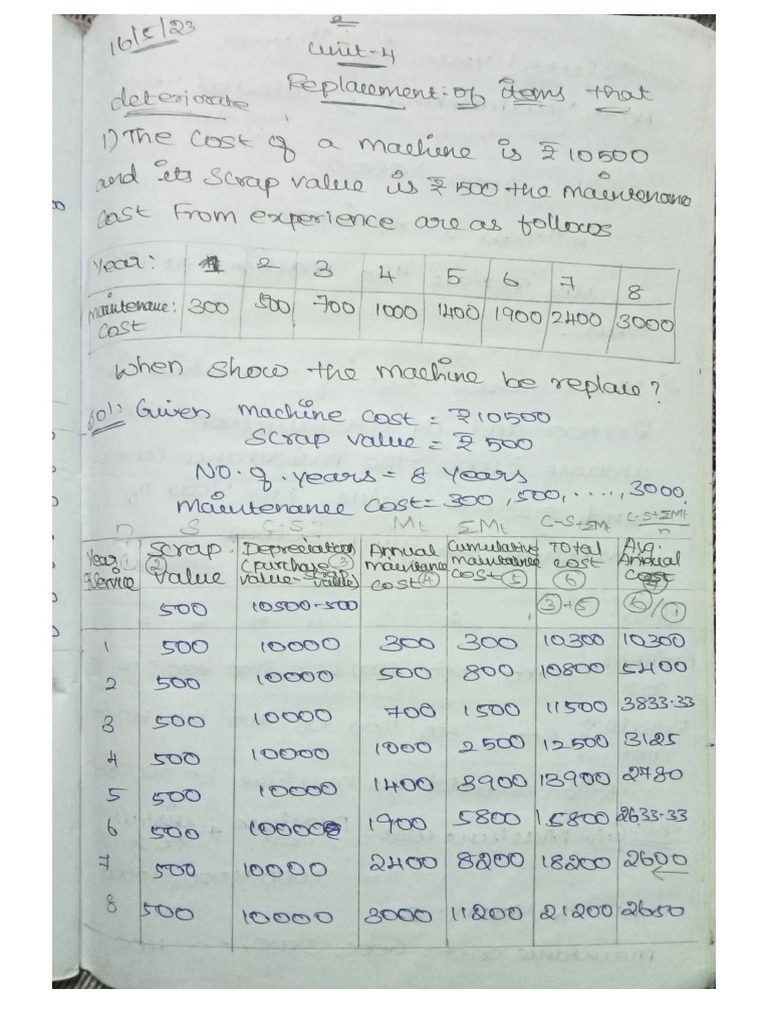 16/5/23
Unit-4
Replacement of items that
deteriorate
1) The cost of a machine is ₹ 10500
and its scrap value is ₹ 500 the maintenance
cost from experience are as follows
Year: 1 2 3 4 5 6 7 8
maintenance: cost 300 500 700 1000 1400 1900 2400 3000
When show the machine be replace?
Sol: Given machine cost = ₹10500
Scrap value = ₹ 500
No. of. years = 8 years
maintenance cost = 300, 500, ....., 3000.
n S C-S Mt ΣMt C-S+ΣMt C-S+ΣMt/n
Year of service ① Scrap value ② Depreciation (purchase value - scrap value) ③ Annual maintance cost ④ Cumulative maintaince cost ⑤ Total cost ⑥ Avg. Annual cost ⑦
500 10500-500 ③+⑤ ⑥/①
1 500 10000 300 300 10300 10300
2 500 10000 500 800 10800 5400
3 500 10000 700 1500 11500 3833.33
4 500 10000 1000 2500 12500 3125
5 500 10000 1400 3900 13900 2780
6 500 10000 1900 5800 15800 2633.33
7 500 10000 2400 8200 18200 2600
8 500 10000 3000 11200 21200 2650